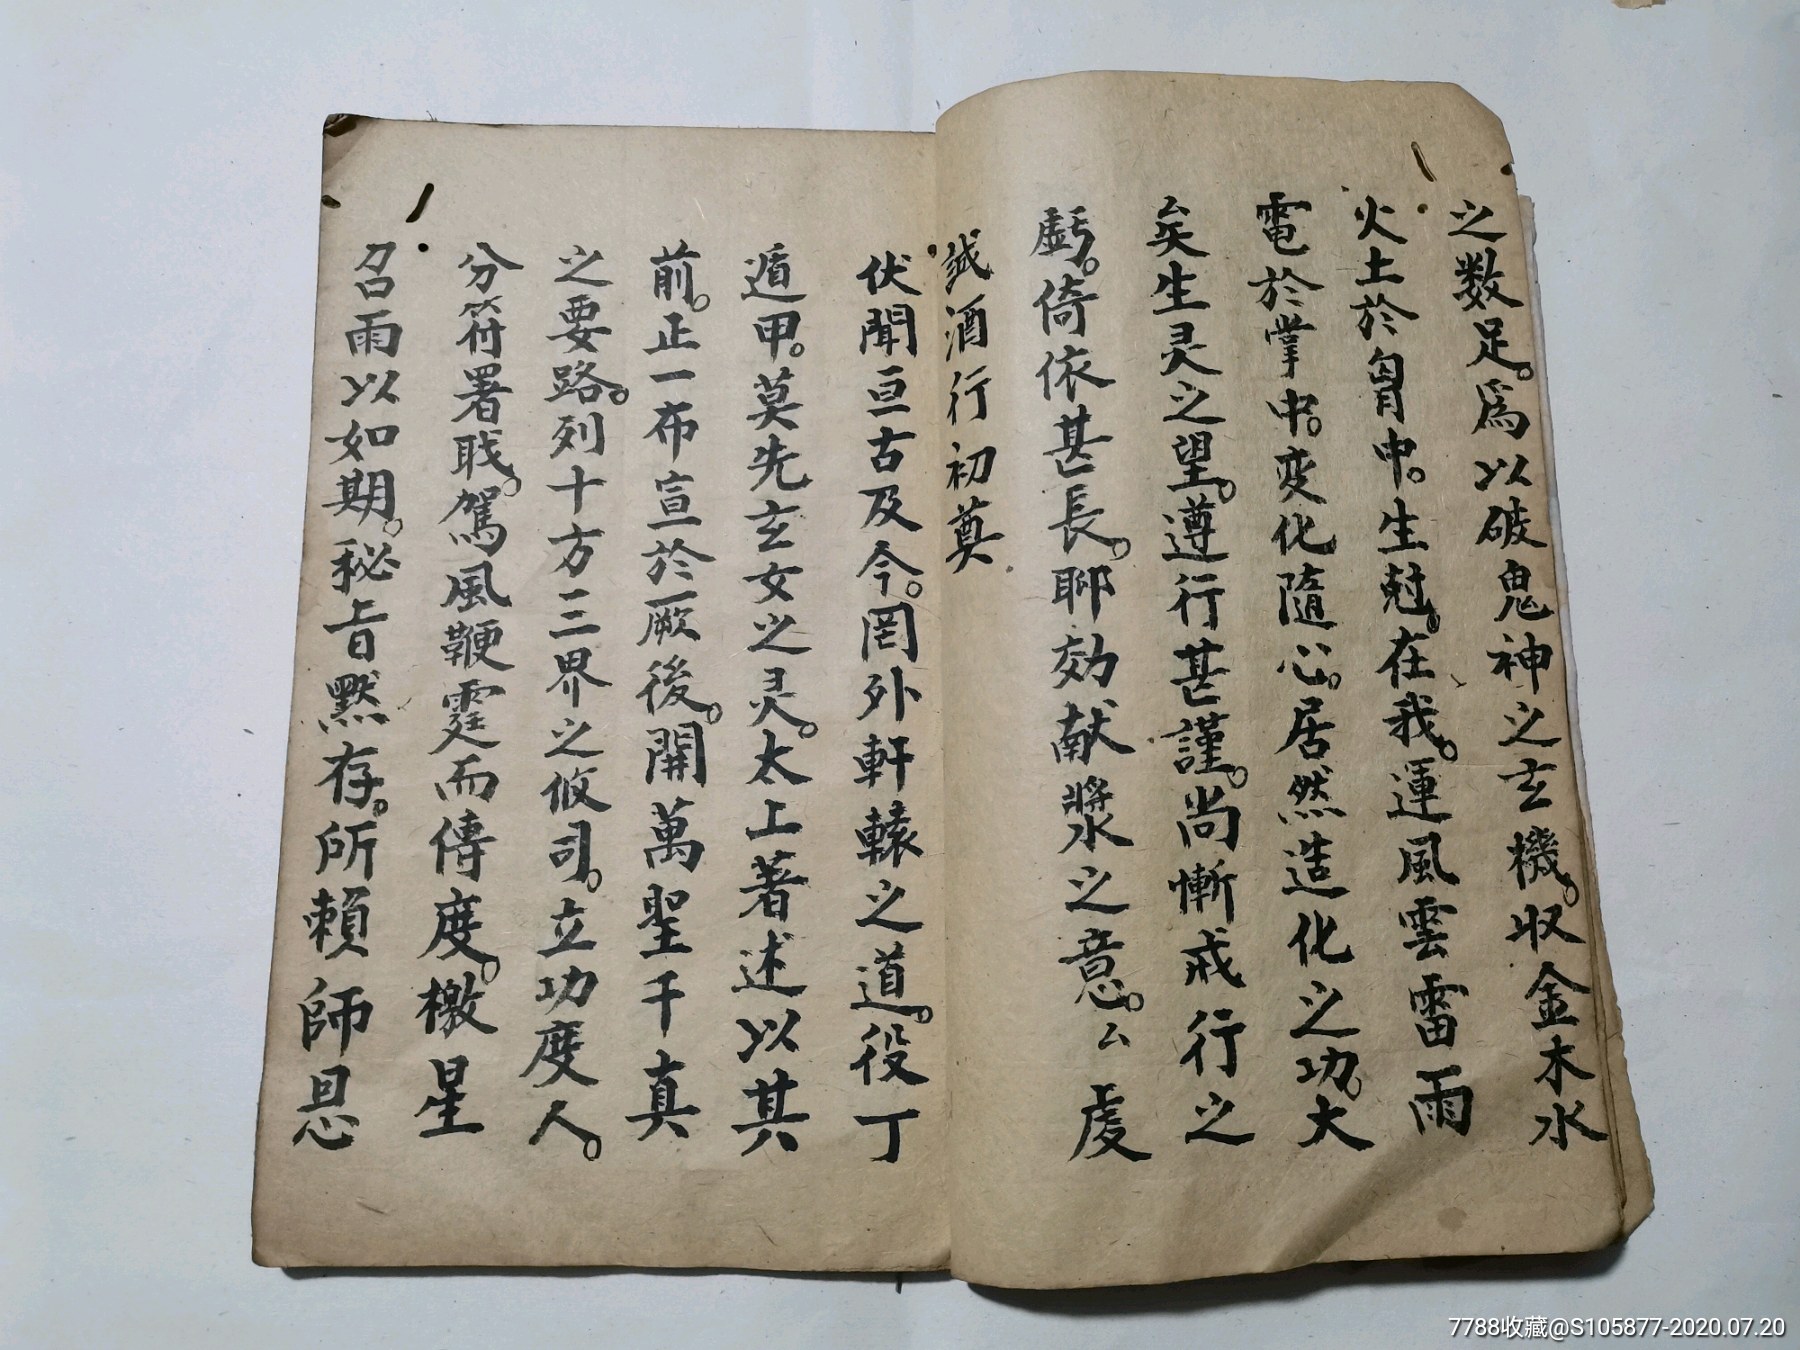 之数足。爲以破鬼神之玄機。収金木水
火土於胷中。生尅。在我。運風雲雷雨
電於掌中。变化隨心。居然造化之功。大
矣生灵之望。遵行甚謹。尚慚戒行之
虧。倚依甚長。聊効献漿之意。厶 虔
誠酒行初奠
伏聞亘古及今。罔外軒轅之道。役丁
遁甲。莫先玄女之灵。太上著述以其
前。正一布宣於厥後。開萬聖千真
之要路。列十方三界之攸司。立功度人。
分符署職。駕風鞭霆而傳度。檄星
召雨以如期。秘旨默存。所賴師恩
7788收藏@S105877-2020.07.20